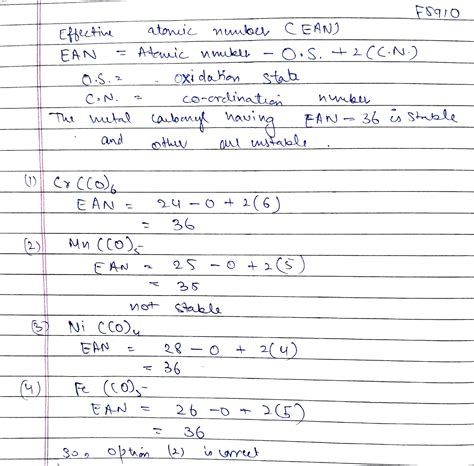 F5910
Effective atomic number (EAN)
EAN = Atomic number - O.S. + 2(C.N.)
O.S. = oxidation state
C.N. = co-ordination number
The metal carbonyl having EAN = 36 is stable
and other are unstable.
(1) Cr(CO)6
EAN = 24 - 0 + 2(6)
= 36
(2) Mn(CO)5-
EAN = 25 - 0 + 2(5)
= 35
not stable
(3) Ni(CO)4
EAN = 28 - 0 + 2(4)
= 36
(4) Fe(CO)5-
EAN = 26 - 0 + 2(5)
= 36
So, option (2) is correct